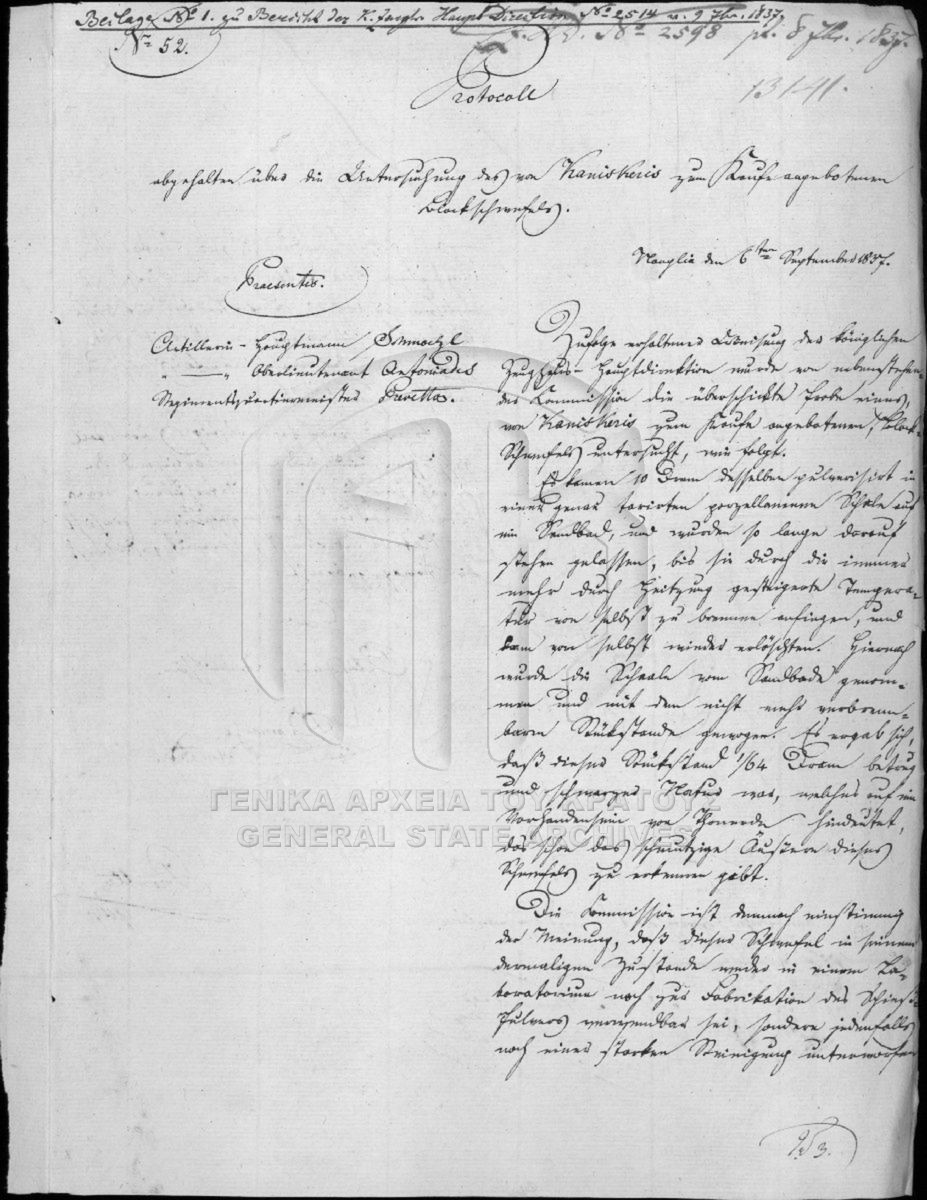 Beilage No 1. zu Bericht der K. Zeughs Haupt Direction No 2514 v. 9 7br. 1837.
No 2598 8 7br. 1837.
No 52.
13141.
Protocoll
abgehalten über die Untersuchung des von Kaniskeris zum Kaufe angebotenen
Blockschwefels.
Nauplia den 6ten September 1837.
Praesentes.
Artillerie-Hauptmann Schmoelzl
" — " Oberlieutenant Antoniades
Regimentsquartiermeister Pavetta.
Zufolge erhaltener Weisung der königlichen
Zeughaus-Hauptdirektion wurde von nebenstehen-
der Commission die überschickte Probe eines,
von Kaniskeris zum Kaufe angebotenen, Block-
Schwefels untersucht, wie folgt.
Es kamen 10 Dram desselben pulverisirt in
einer genau tarirten porzellanenen Schale auf
ein Sandbad, und wurden so lange darauf
stehen gelassen, bis sie durch die immer
mehr durch Heitzung gesteigerte Tempera-
tur von selbst zu brennen anfingen, und
dann von selbst wieder erlöschten. Hiernach
wurde die Schaale vom Sandbade genom-
men und mit dem nicht mehr verbrenn-
baren Rückstande gewogen. Es ergab sich,
daß dieser Rückstand 1/64 Dram betrug
und schwarzer Natur war, welches auf ein
Vorhandensein von Thonerde hindeutet,
das schon das schmutzige Äussere dieses
Schwefels zu erkennen gibt.
Die Commission ist demnach einstimmig
der Meinung, daß dieser Schwefel in seinem
dermaligen Zustande weder in einem La-
boratorium noch zur Fabrikation des Schieß-
Pulvers verwendbar sei, sondern jedenfalls
noch einer starken Reinigung unterworfen
ΓΕΝΙΚΑ ΑΡΧΕΙΑ ΤΟΥ ΚΡΑΤΟΥΣ
GENERAL STATE ARCHIVES